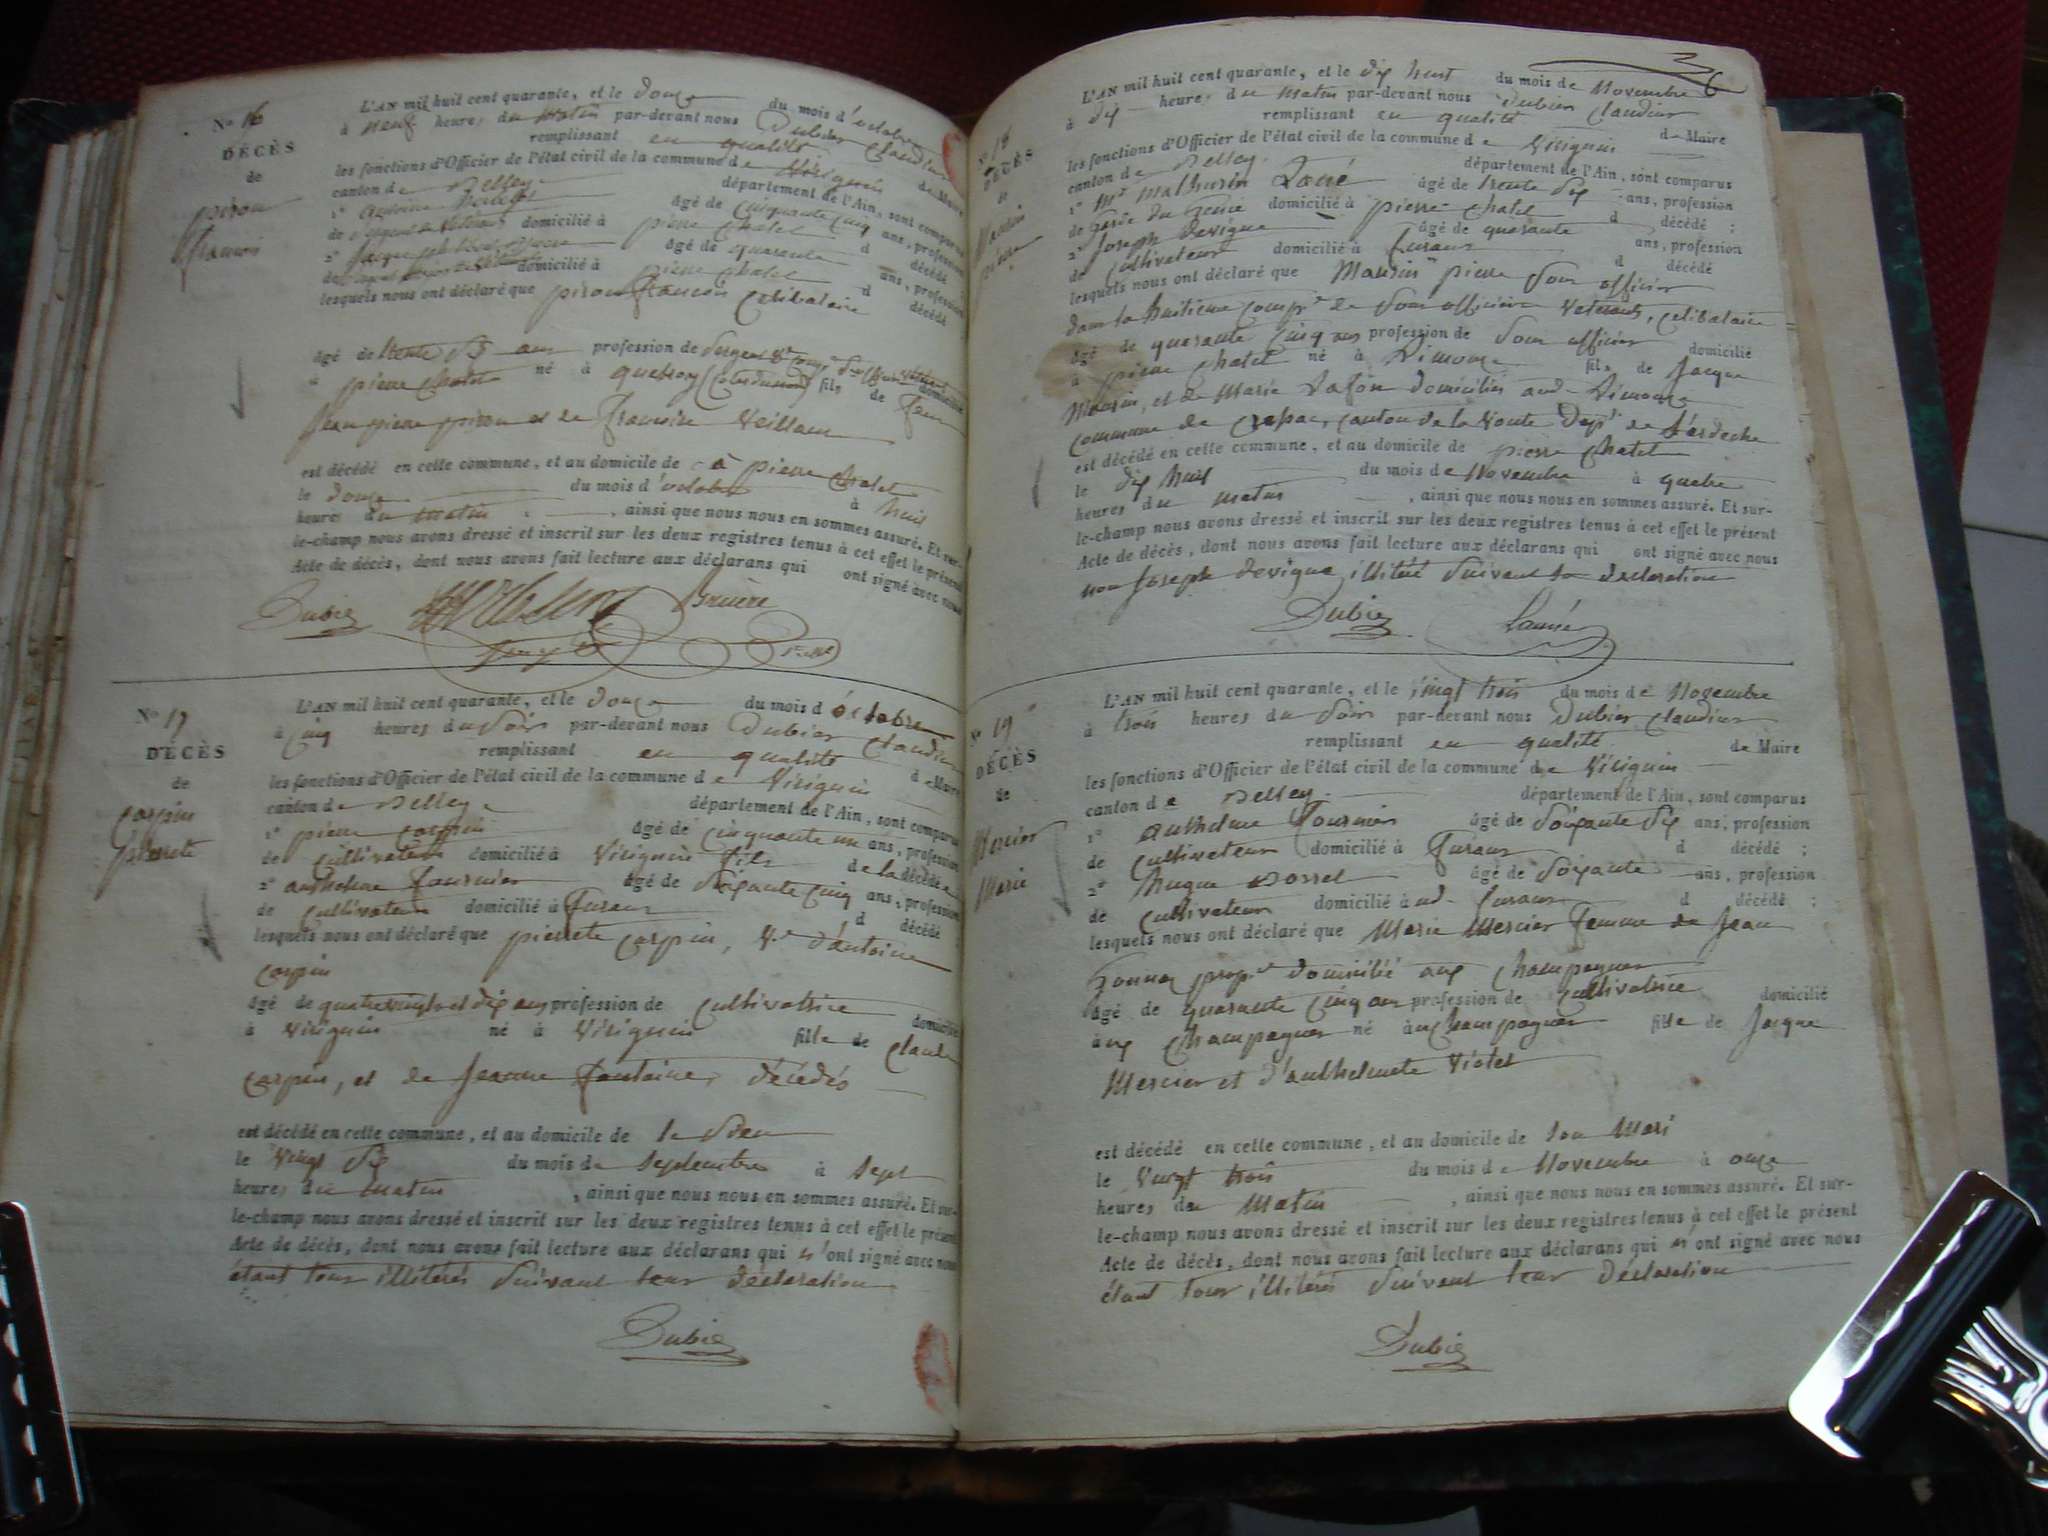 No 16
DÉCÈS
de
piron
francois
L'AN mil huit cent quarante, et le douze du mois d'octobre
à neuf heures du matin par-devant nous Dubier Claudius
remplissant en qualité de Maire
les fonctions d'Officier de l'état civil de la commune de Virignin
canton de Belley département de l'Ain, sont comparus
1° Antoine âgé de cinquante cinq ans, profession
de sergent domicilié à pierre Chatel d décédé
2° Jacque âgé de quarante ans, profession
de domicilié à pierre Chatel d décédé
lesquels nous ont déclaré que piron francois Célibataire
âgé de trente ans profession de sergent domicilié
à pierre Chatel né à (Cotes du nord) fils de feu
Jean pierre piron et de francoise
est décédé en cette commune, et au domicile de à pierre Chatel
le douze du mois d'octobre à huit
heures du matin, ainsi que nous nous en sommes assuré. Et sur-
le-champ nous avons dressé et inscrit sur les deux registres tenus à cet effet le présent
Acte de décès, dont nous avons fait lecture aux déclarans qui ont signé avec nous
Dubier Bruière
No 17
DÉCÈS
de
Carpin
pierrete
L'AN mil huit cent quarante, et le douze du mois d'octobre
à cinq heures du soir par-devant nous Dubier Claudius
remplissant en qualité de Maire
les fonctions d'Officier de l'état civil de la commune de Virignin
canton de Belley département de l'Ain, sont comparus
1° pierre Carpin âgé de cinquante un ans, profession
de cultivateur domicilié à Virignin fils de la décédée
2° anthelme fournier âgé de soixante cinq ans, profession
de cultivateur domicilié à furans d décédé ;
lesquels nous ont déclaré que pierrete Carpin, Ve d'antoine
Carpin
âgé de quatre vingt et dix ans profession de cultivatrice domicilié
à Virignin né à Virignin fille de Claude
Carpin, et de Jeanne fontaine, décédés
est décédé en cette commune, et au domicile de le sien
le vingt six du mois de septembre à sept
heures du matin, ainsi que nous nous en sommes assuré. Et sur-
le-champ nous avons dressé et inscrit sur les deux registres tenus à cet effet le présent
Acte de décès, dont nous avons fait lecture aux déclarans qui n'ont signé avec nous
étant tous illitérés suivant leur déclaration
Dubier
6
No 18
DÉCÈS
de
Maurin
pierre
L'AN mil huit cent quarante, et le dix huit du mois de Novembre
à dix heures du matin par-devant nous Dubier Claudius
remplissant en qualité de Maire
les fonctions d'Officier de l'état civil de la commune de Virignin
canton de Belley département de l'Ain, sont comparus
1° Mr Mathurin Launé âgé de trente six ans, profession
de garde du Genie domicilié à pierre Chatel d décédé ;
2° Joseph devigne âgé de quarante ans, profession
de cultivateur domicilié à furans d décédé
lesquels nous ont déclaré que Maurin pierre sous officier
dans la huitieme compie de sous officiers Veterans, celibataire
âgé de quarante cinq ans profession de sous officier domicilié
à pierre Chatel né à Limouze fils de Jacque
Maurin, et de Marie Lafon domiciliés aud. Limouze
commune de canton de la Voute Dept de l'ardeche
est décédé en cette commune, et au domicile de pierre Chatel
le dix huit du mois de Novembre à quatre
heures du matin, ainsi que nous nous en sommes assuré. Et sur-
le-champ nous avons dressé et inscrit sur les deux registres tenus à cet effet le présent
Acte de décès, dont nous avons fait lecture aux déclarans qui ont signé avec nous
non Joseph devigne illitéré suivant sa declaration
Dubier Launé
No 19
DÉCÈS
de
Mercier
Marie
L'AN mil huit cent quarante, et le vingt trois du mois de Novembre
à trois heures du soir par-devant nous Dubier Claudius
remplissant en qualité de Maire
les fonctions d'Officier de l'état civil de la commune de Virignin
canton de Belley département de l'Ain, sont comparus
1° anthelme fournier âgé de soixante six ans, profession
de cultivateur domicilié à furans d décédé ;
2° hugue Borrel âgé de soixante ans, profession
de cultivateur domicilié à ud. furans d décédé ;
lesquels nous ont déclaré que Marie Mercier femme de Jean
propre domicilié aux Champagnes
âgé de quarante cinq ans profession de cultivatrice domicilié
aux Champagnes né aux Champagnes fille de Jacque
Mercier et d'anthelmete Violet
est décédé en cette commune, et au domicile de son Mari
le vingt trois du mois de Novembre à onze
heures du Matin, ainsi que nous nous en sommes assuré. Et sur-
le-champ nous avons dressé et inscrit sur les deux registres tenus à cet effet le présent
Acte de décès, dont nous avons fait lecture aux déclarans qui n'ont signé avec nous
étant tous illitérés suivant leur déclaration
Dubier